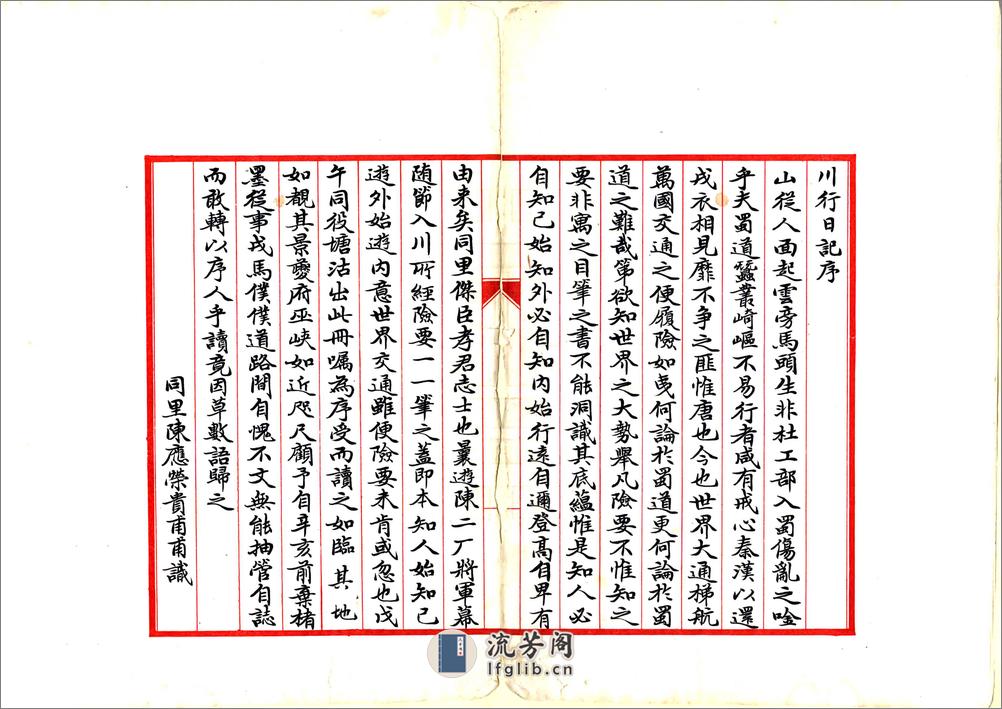 川行日記序
山從人面起雲旁馬頭生非杜工部入蜀傷亂之唫
乎夫蜀道蠶叢崎嶇不易行者咸有戒心秦漢以還
戎衣相見靡不爭之匪惟唐也今也世界大通梯航
萬國交通之便履險如夷何論於蜀道更何論於蜀
道之難哉第欲知世界之大勢舉凡險要不惟知之
要非寓之目筆之書不能洞識其底蘊惟是知人必
自知己始知外必自知內始行遠自邇登高自卑有
由來矣同里傑臣孝君志士也曩遊陳二厂將軍幕
随節入川所經險要一一筆之蓋即本知人始知己
遊外始遊內意世界交通雖便險要未肯或忽也戊
午同役塘沽出此冊嘱為序受而讀之如臨其地
如覩其景夔府巫峽如近咫尺顧予自辛亥前棄楮
墨從事戎馬僕僕道路間自愧不文無能抽管自誌
而敢轉以序人乎讀竟因草數語歸之
同里陳應榮貴甫甫識
流芳阁
lfglib.cn